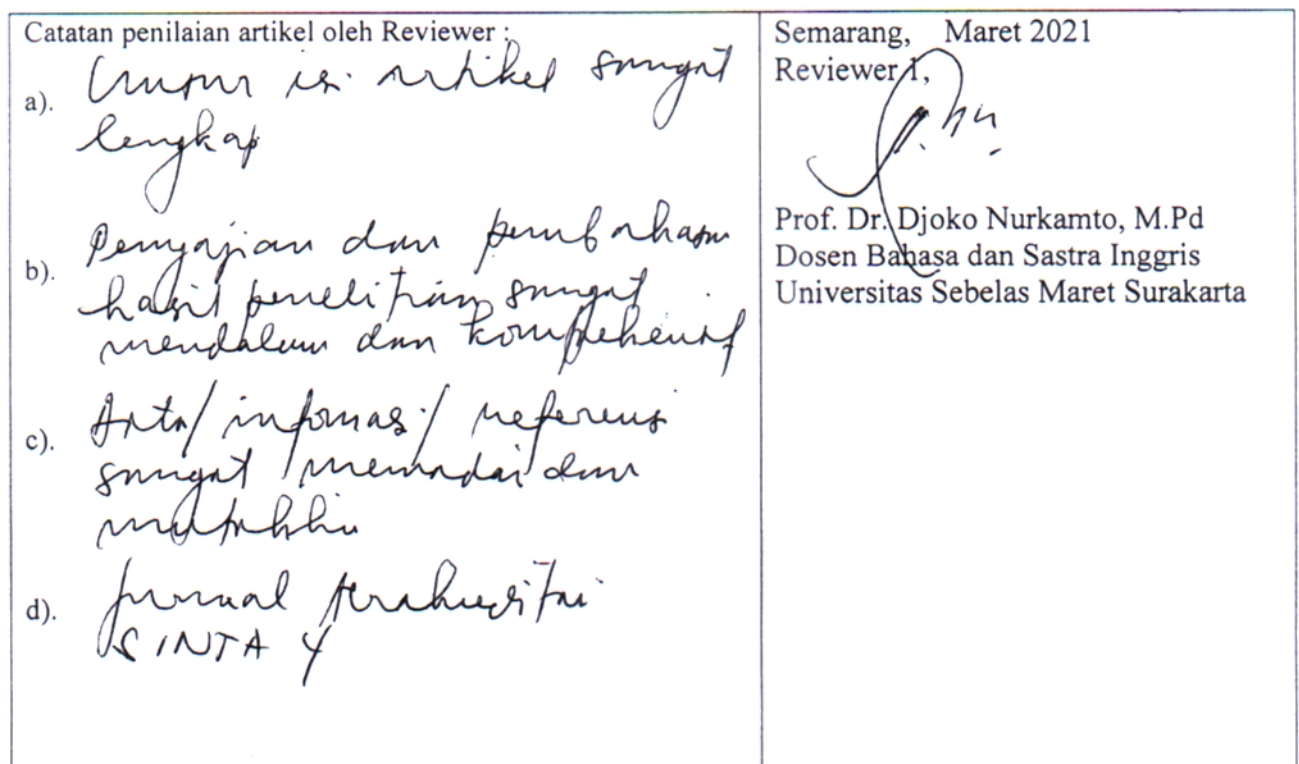 Catatan penilaian artikel oleh Reviewer :
a). Unsur isi artikel sangat
lengkap
b). Penyajian dan pembahasan
hasil penelitian sangat
mendalam dan komprehensif
c). Data/informasi/referensi
sangat memadai dan
mutakhir
d). Jurnal terakreditasi
SINTA 4
Semarang, Maret 2021
Reviewer 1,
Prof. Dr. Djoko Nurkamto, M.Pd
Dosen Bahasa dan Sastra Inggris
Universitas Sebelas Maret Surakarta